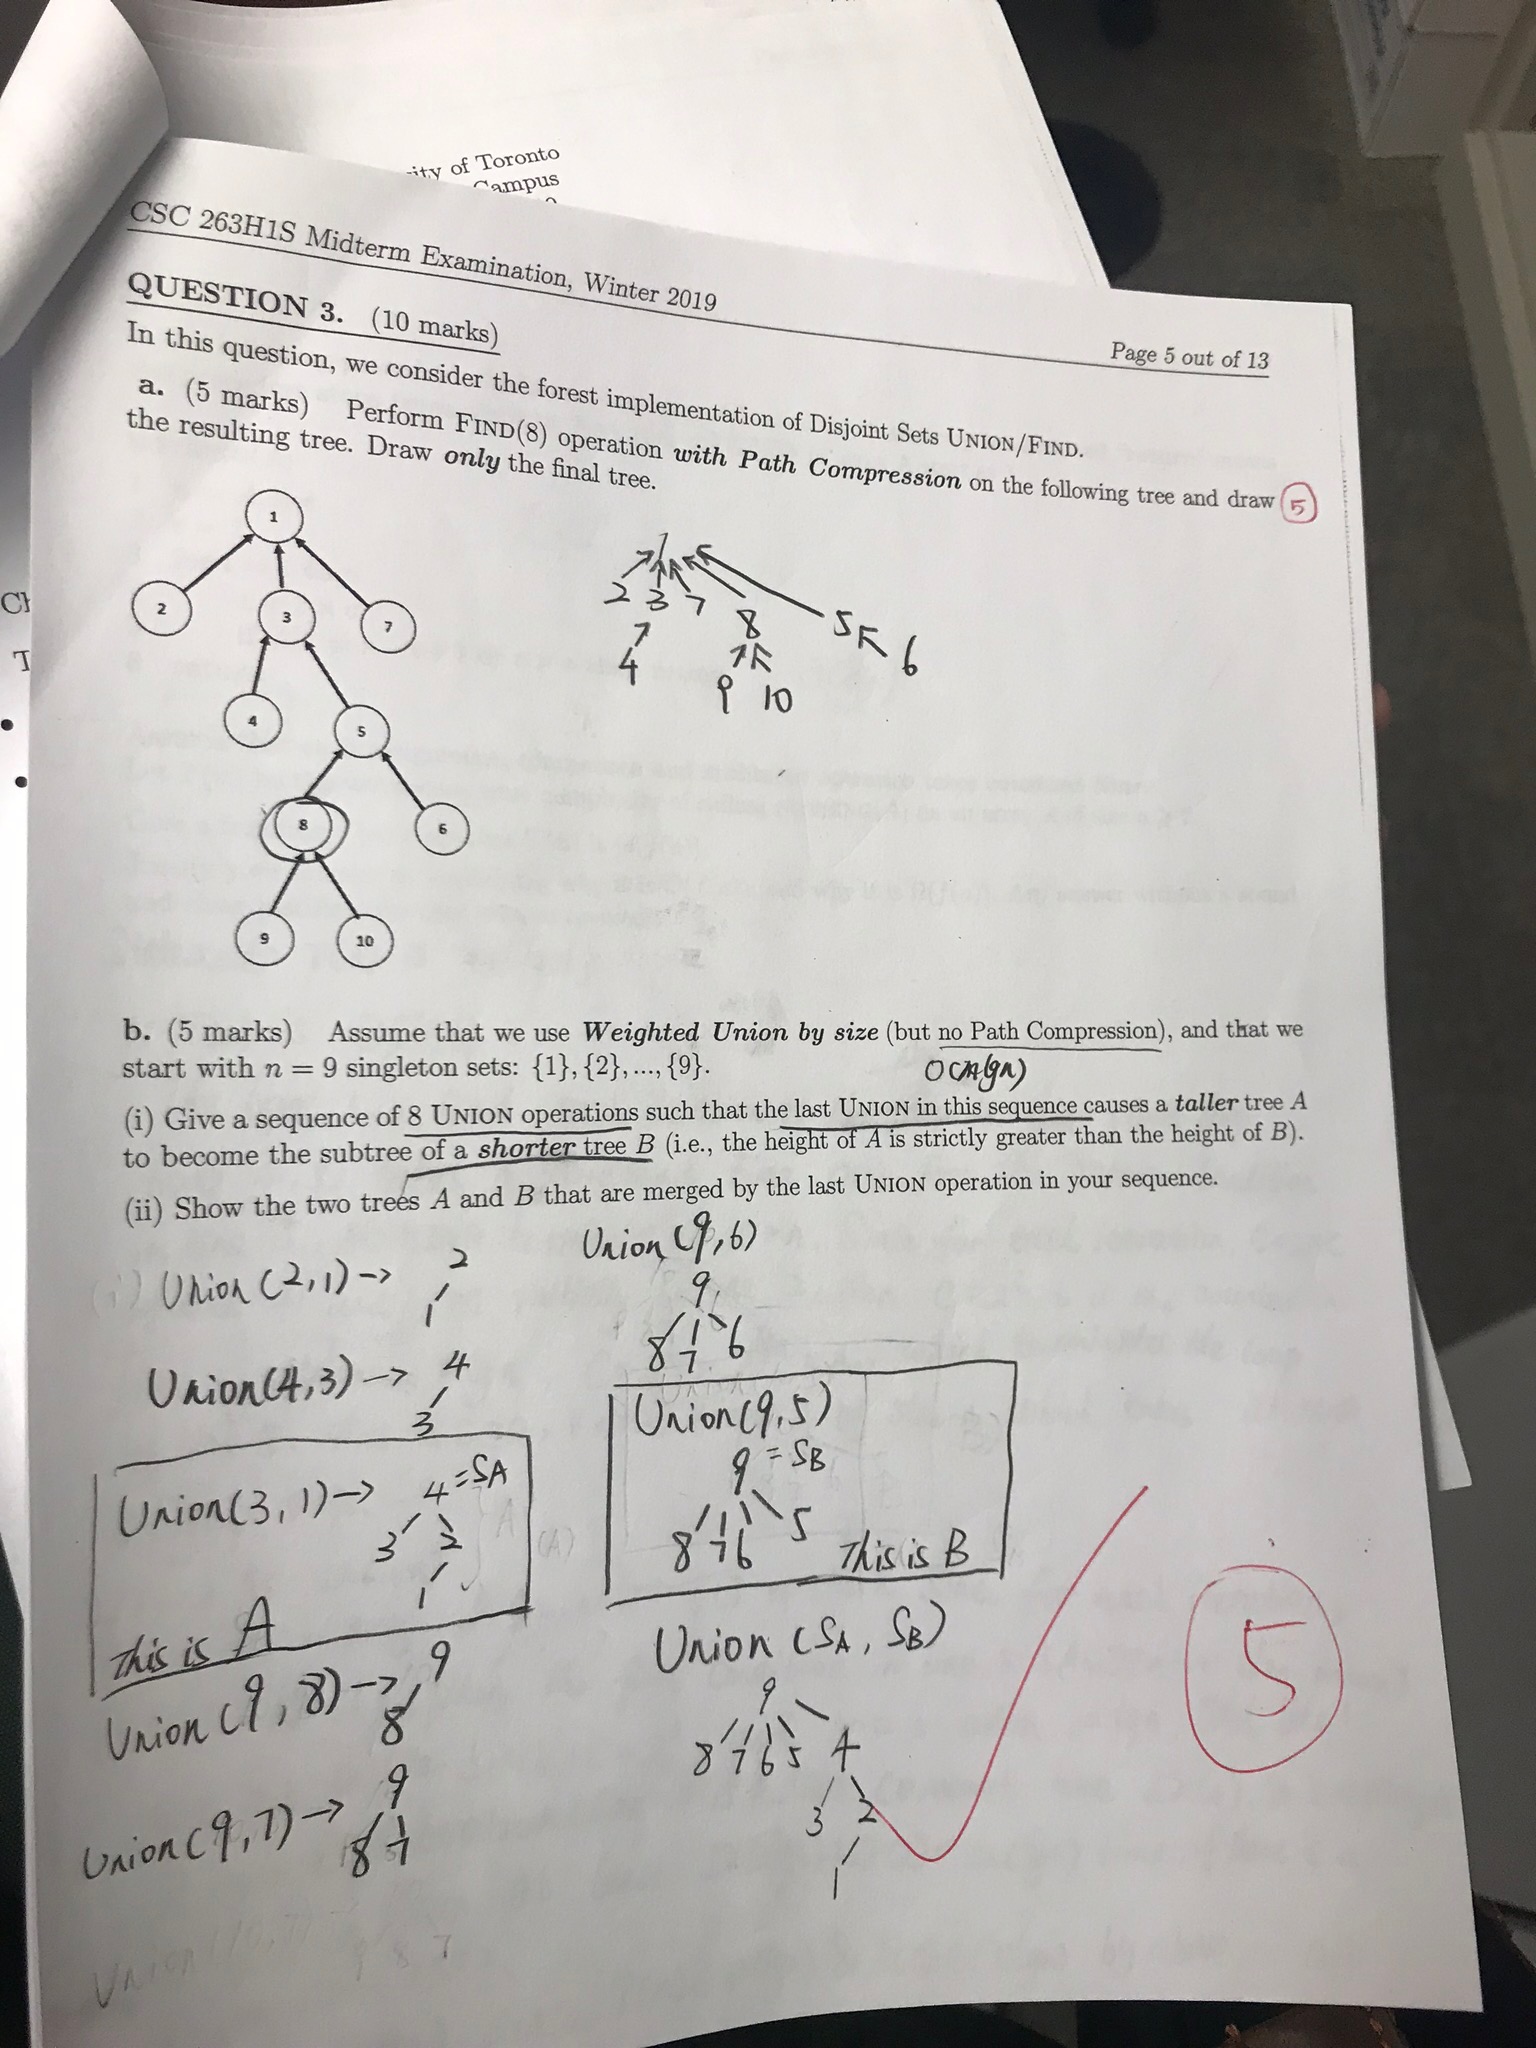 ity of Toronto
Campus
CSC 263H1S Midterm Examination, Winter 2019
Page 5 out of 13
QUESTION 3. (10 marks)
In this question, we consider the forest implementation of Disjoint Sets UNION/FIND.
a. (5 marks) Perform FIND(8) operation with Path Compression on the following tree and draw
the resulting tree. Draw only the final tree.
5
1
2 3 7
4 5
8 6
9 10
1
2 3 7 8 5 6
4 9 10
b. (5 marks) Assume that we use Weighted Union by size (but no Path Compression), and that we
start with n = 9 singleton sets: {1}, {2}, ..., {9}.
(i) Give a sequence of 8 UNION operations such that the last UNION in this sequence causes a taller tree A
to become the subtree of a shorter tree B (i.e., the height of A is strictly greater than the height of B).
(ii) Show the two trees A and B that are merged by the last UNION operation in your sequence.
Union (2,1) ->
2
1
Union(4,3) ->
4
3
Union(3,1) ->
4 = SA
3 2
1
This is A
Union (9,8) ->
9
8
Union(9,7) ->
9
8 7
Union (9,6)
9
8 7 6
Union(9,5)
9 = SB
8 7 6 5
This is B
Union (SA, SB)
9
8 7 6 5 4
3 2
1
5